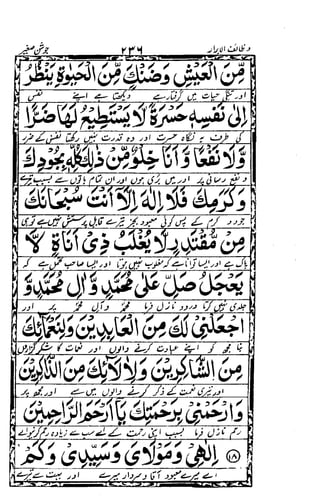 وظائف الابرار ۲۳۶ جوشن صغیر
مِنَ الْعَيْشِ وَضَنْكٍ مِنَ الْحَيٰوةِ يَنْظُرُ
اور تنگی حیات میں گرفتار ہے دیکھتا ہے اپنے نفس
اِلٰى نَفْسِهٖ حَسْرَةً لَا يَسْتَطِيْعُ لَهَا ضَرًّا
کی طرف بہ نگاہ حسرت اور وہ قدرت نہیں رکھتا نفس کے ضرر
وَّلَا نَفْعًا وَاَنَا خِلْوٌ مِّنْ ذٰلِكَ كُلِّهٖ بِجُوْدِكَ
و نفع رسانی پر اور میں بری ہوں اور ان تمام باتوں سے بسبب تیرے
وَكَرَمِكَ فَلَا اِلٰهَ اِلَّا اَنْتَ سُبْحَانَكَ
جود و کرم کے پس کوئی معبود بجز تیرے قابل پرستش نہیں ہے توہی
مِنْ مُقْتَدِرٍ لَا يُغْلَبُ ذِىْ اَنَاةٍ لَّا
پاک ہے اور ایسا توانا ہے کہ مغلوب نہیں ہوتا اور ایسا صاحب تحمل ہے کہ
يَعْجَلُ صَلِّ عَلٰى مُحَمَّدٍ وَّاٰلِ مُحَمَّدٍ وَّ
جلدی نہیں کرتا درود نازل فرما محمد و آل محمد پر اور
اجْعَلْنِىْ لَكَ مِنَ الْعَابِدِيْنَ وَلِنَعْمَائِكَ
بنا مجھ کو اپنے عبادت کرنے والوں اور نعمات کا شکر گزاروں
مِنَ الشَّاكِرِيْنَ وَلِاٰلَائِكَ مِنَ الذَّاكِرِيْنَ
اور تیری نعمت کے ذکر کرنے والوں میں سے اور مجھ پر
وَارْحَمْنِىْ بِرَحْمَتِكَ يَا اَرْحَمَ الرَّاحِمِيْنَ
رحم نازل فرما بسبب اپنی رحمت کے اے سب سے زیادہ رحم کرنیوالے
۱۸ اِلٰهِىْ وَمَوْلَاىَ وَسَيِّدِىْ وَكَمْ
اے میرے معبود آقا و سردار میرے اور بہت سے تیرے